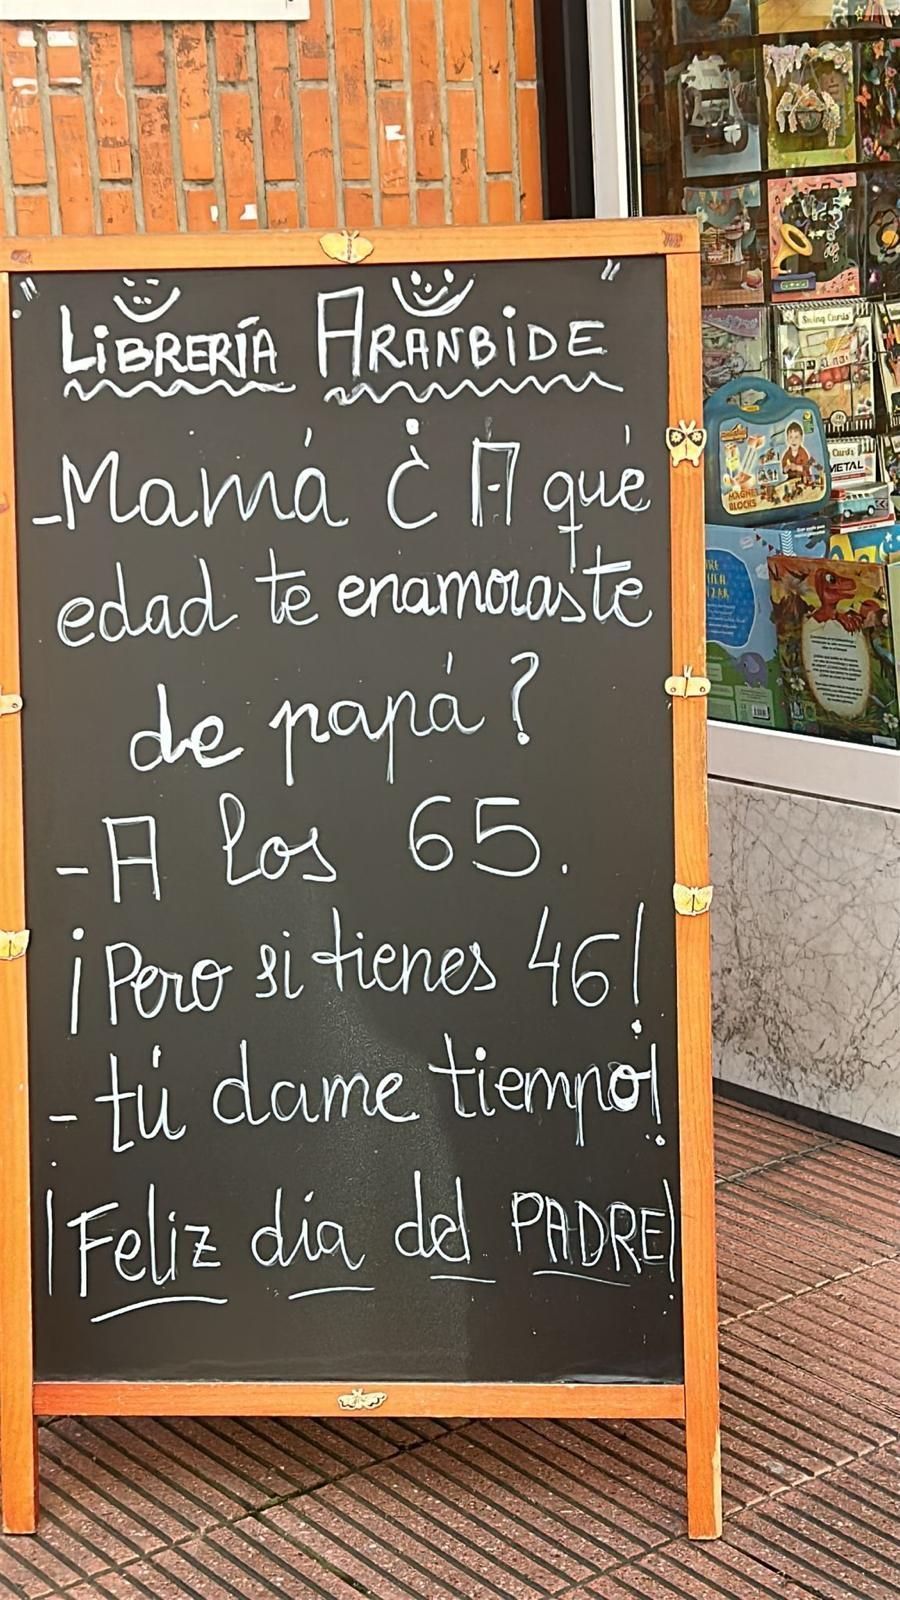 "LiBRERÍA ARANBiDE"
-Mamá ¿ A qué
edad te enamoraste
de papá?
-A los 65.
¡Pero si tienes 46!
-tú dame tiempo!
¡Feliz día del PADRE!
Swing Cards
Cards
METAL
MAGNET
BLOCKS